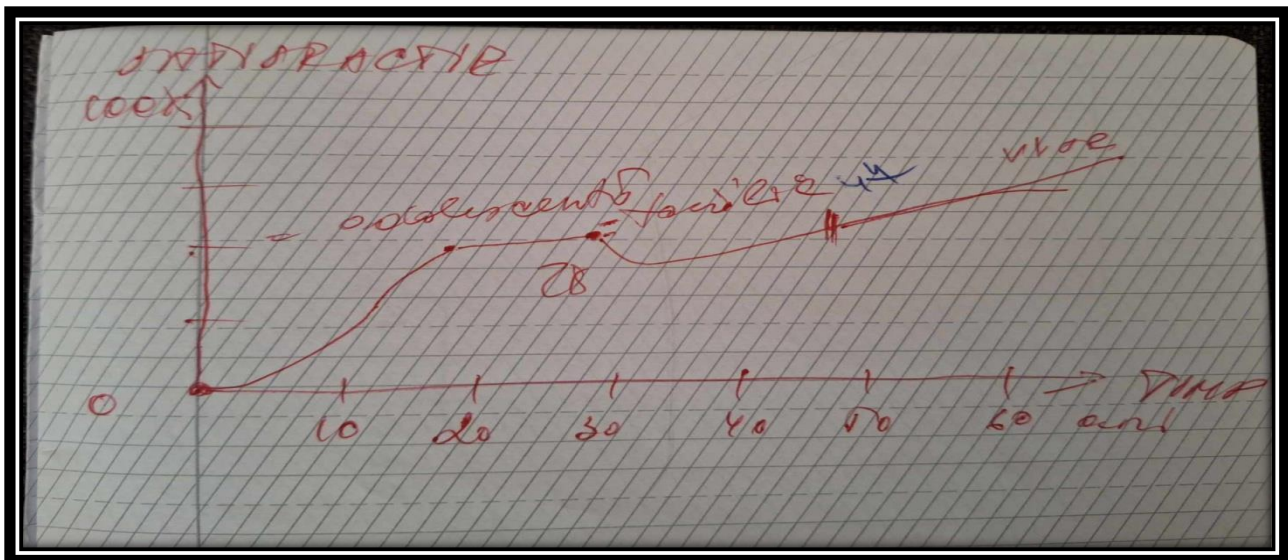 SATISFACTIE
100%
- adolescentă
familie 47
vise
28
0 10 20 30 40 50 60 ani
TIMP